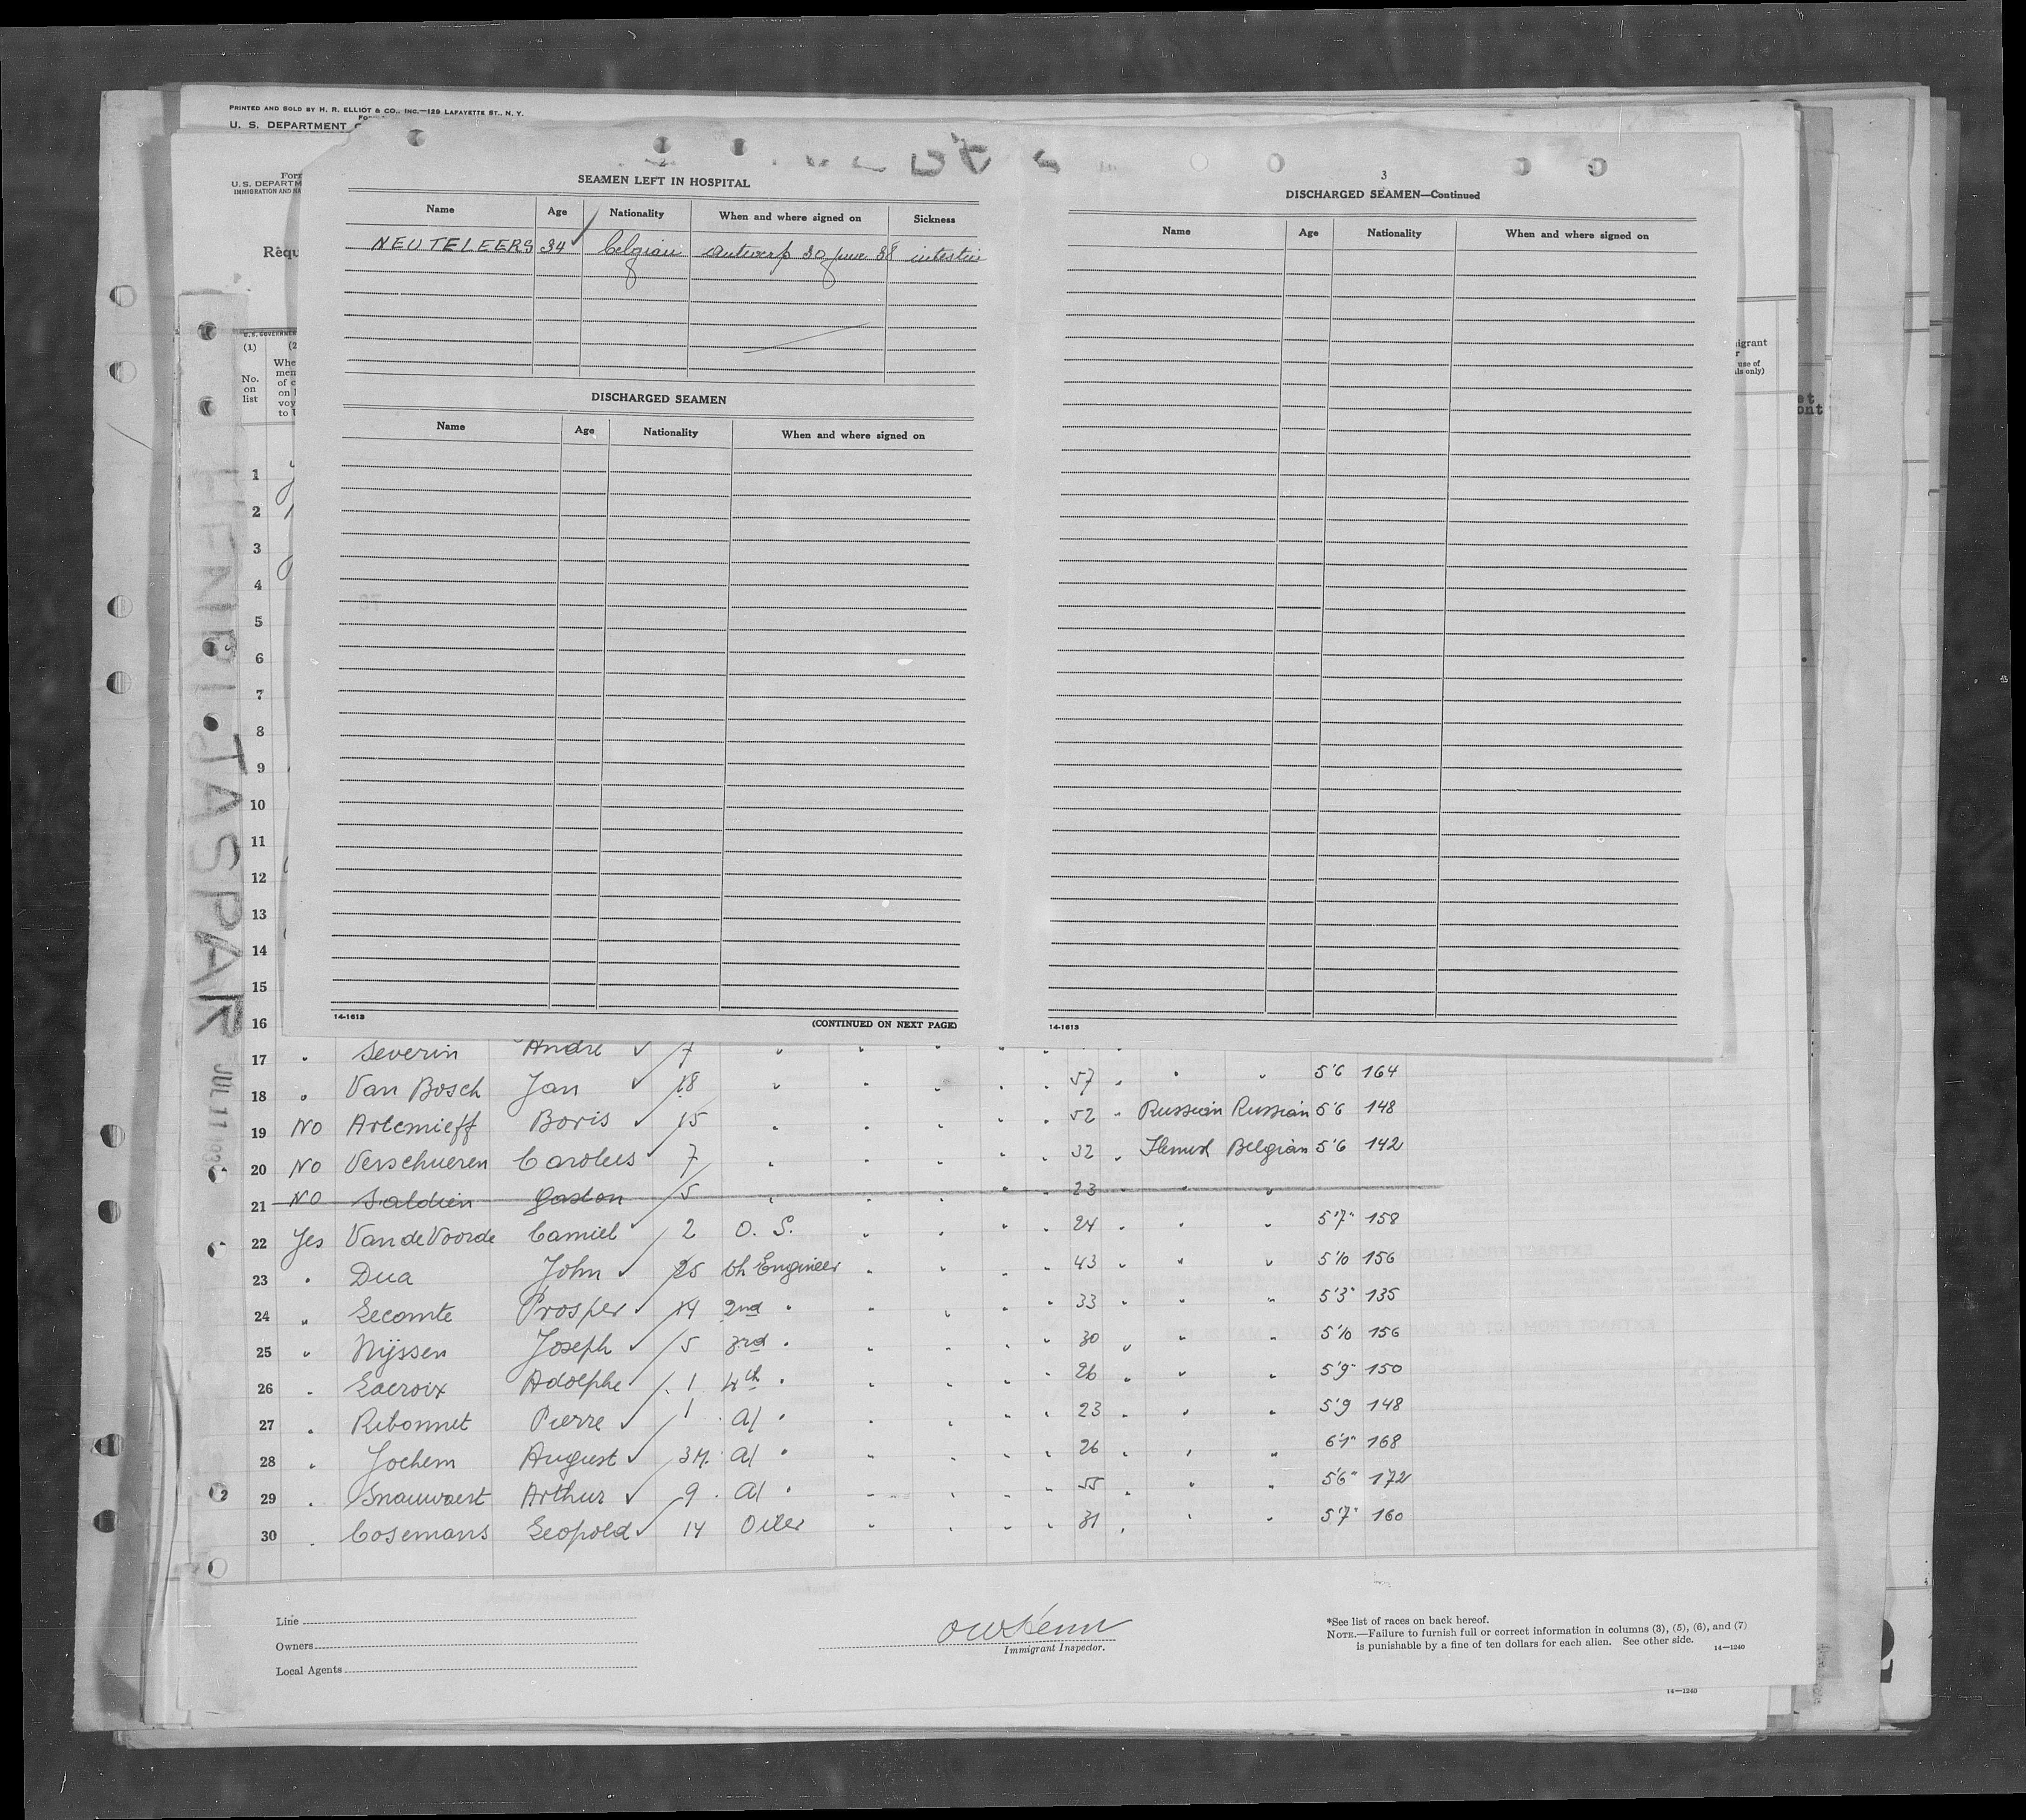 PRINTED AND SOLD BY H. R. ELLIOT & CO., INC.—129 LAFAYETTE ST., N. Y.
U. S. DEPARTMENT
Form
U. S. DEPARTM
IMMIGRATION AND NA
Requ
(1)
No. on list
HENRI JASPAR
JUL 11
2
SEAMEN LEFT IN HOSPITAL
Name Age Nationality When and where signed on Sickness
NEUTELEERS 34 Belgian Antwerp 30 June 38 intestin
DISCHARGED SEAMEN
Name Age Nationality When and where signed on
14-1613
(CONTINUED ON NEXT PAGE)
3
DISCHARGED SEAMEN—Continued
Name Age Nationality When and where signed on
14-1613
1
2
3
4
5
6
7
8
9
10
11
12
13
14
15
16
17 " Severin Andre ✓ 7
18 " Van Bosch Jan ✓ 18 " " " " " 57 " " " 5'6 164
19 No Artemieff Boris ✓ 15 " " " " " 52 " Russian Russian 5'6 148
20 No Verschueren Carolus ✓ 7 " " " " " 32 " Flemish Belgian 5'6 142
21 No Saldien Gaston 5 " " " " " 23 " " "
22 Yes Van de Voorde Camiel ✓ 2 O. S. " " " " 24 " " " 5'7" 158
23 " Dua John ✓ 25 Ch Engineer " " " " 43 " " " 5'10 156
24 " Lecomte Prosper ✓ 14 2nd " " " " " 33 " " " 5'3" 135
25 " Nijssen Joseph ✓ 5 3rd " " " " " 30 " " " 5'10 156
26 " Lacroix Adolphe ✓ 1 4th " " " " " 26 " " " 5'9" 150
27 " Ribonnet Pierre ✓ 1 A/ " " " " " 23 " " " 5'9 148
28 " Jochem August ✓ 3M. A/ " " " " " 26 " " " 6'1" 168
29 " Snauwaert Arthur ✓ 9 A/ " " " " " 55 " " " 5'6" 172
30 " Cosemans Leopold ✓ 14 Oiler " " " " 31 " " " 5'7" 160
Line
Owners
Local Agents
Immigrant Inspector.
*See list of races on back hereof.
NOTE.—Failure to furnish full or correct information in columns (3), (5), (6), and (7)
is punishable by a fine of ten dollars for each alien. See other side.
14—1240
14—1240